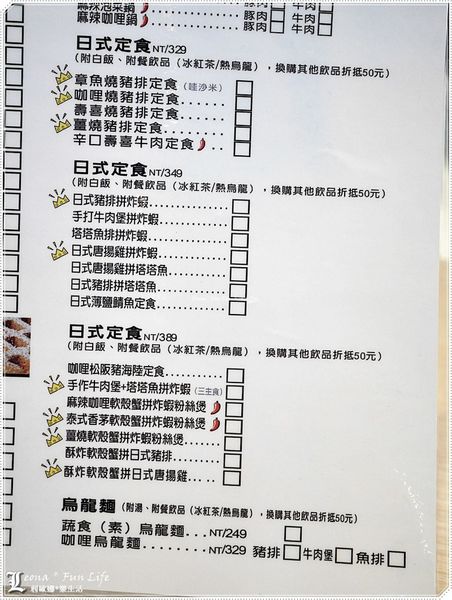 麻辣泡菜鍋 豚肉 牛肉
麻辣咖哩鍋 豚肉 牛肉
日式定食NT/329
(附白飯、附餐飲品(冰紅茶/熱烏龍),換購其他飲品折抵50元)
章魚燒豬排定食(哇沙米)
咖哩燒豬排定食......
壽喜燒豬排定食......
薑燒豬排定食.........
辛口壽喜牛肉定食..
日式定食NT/349
(附白飯、附餐飲品(冰紅茶/熱烏龍),換購其他飲品折抵50元)
日式豬排拼炸蝦............
手打牛肉堡拼炸蝦.........
塔塔魚排拼炸蝦............
日式唐揚雞拼炸蝦.........
日式唐揚雞拼塔塔魚......
日式豬排拼塔塔魚.........
日式薄鹽鯖魚定食.........
日式定食NT/389
(附白飯、附餐飲品(冰紅茶/熱烏龍),換購其他飲品折抵50元)
咖哩松阪豬海陸定食.........
手作牛肉堡+塔塔魚拼炸蝦(三主食)
麻辣咖哩軟殼蟹拼炸蝦粉絲煲
泰式香茅軟殼蟹拼炸蝦粉絲煲
薑燒軟殼蟹拼炸蝦粉絲煲......
酥炸軟殼蟹拼日式豬排.........
酥炸軟殼蟹拼日式唐揚雞......
烏龍麵(附湯、附餐飲品(冰紅茶/熱烏龍),換購其他飲品折抵50元)
蔬食(素)烏龍麵...NT/249
咖哩烏龍麵............NT/329 豬排 牛肉堡 魚排
Leona * Fun Life